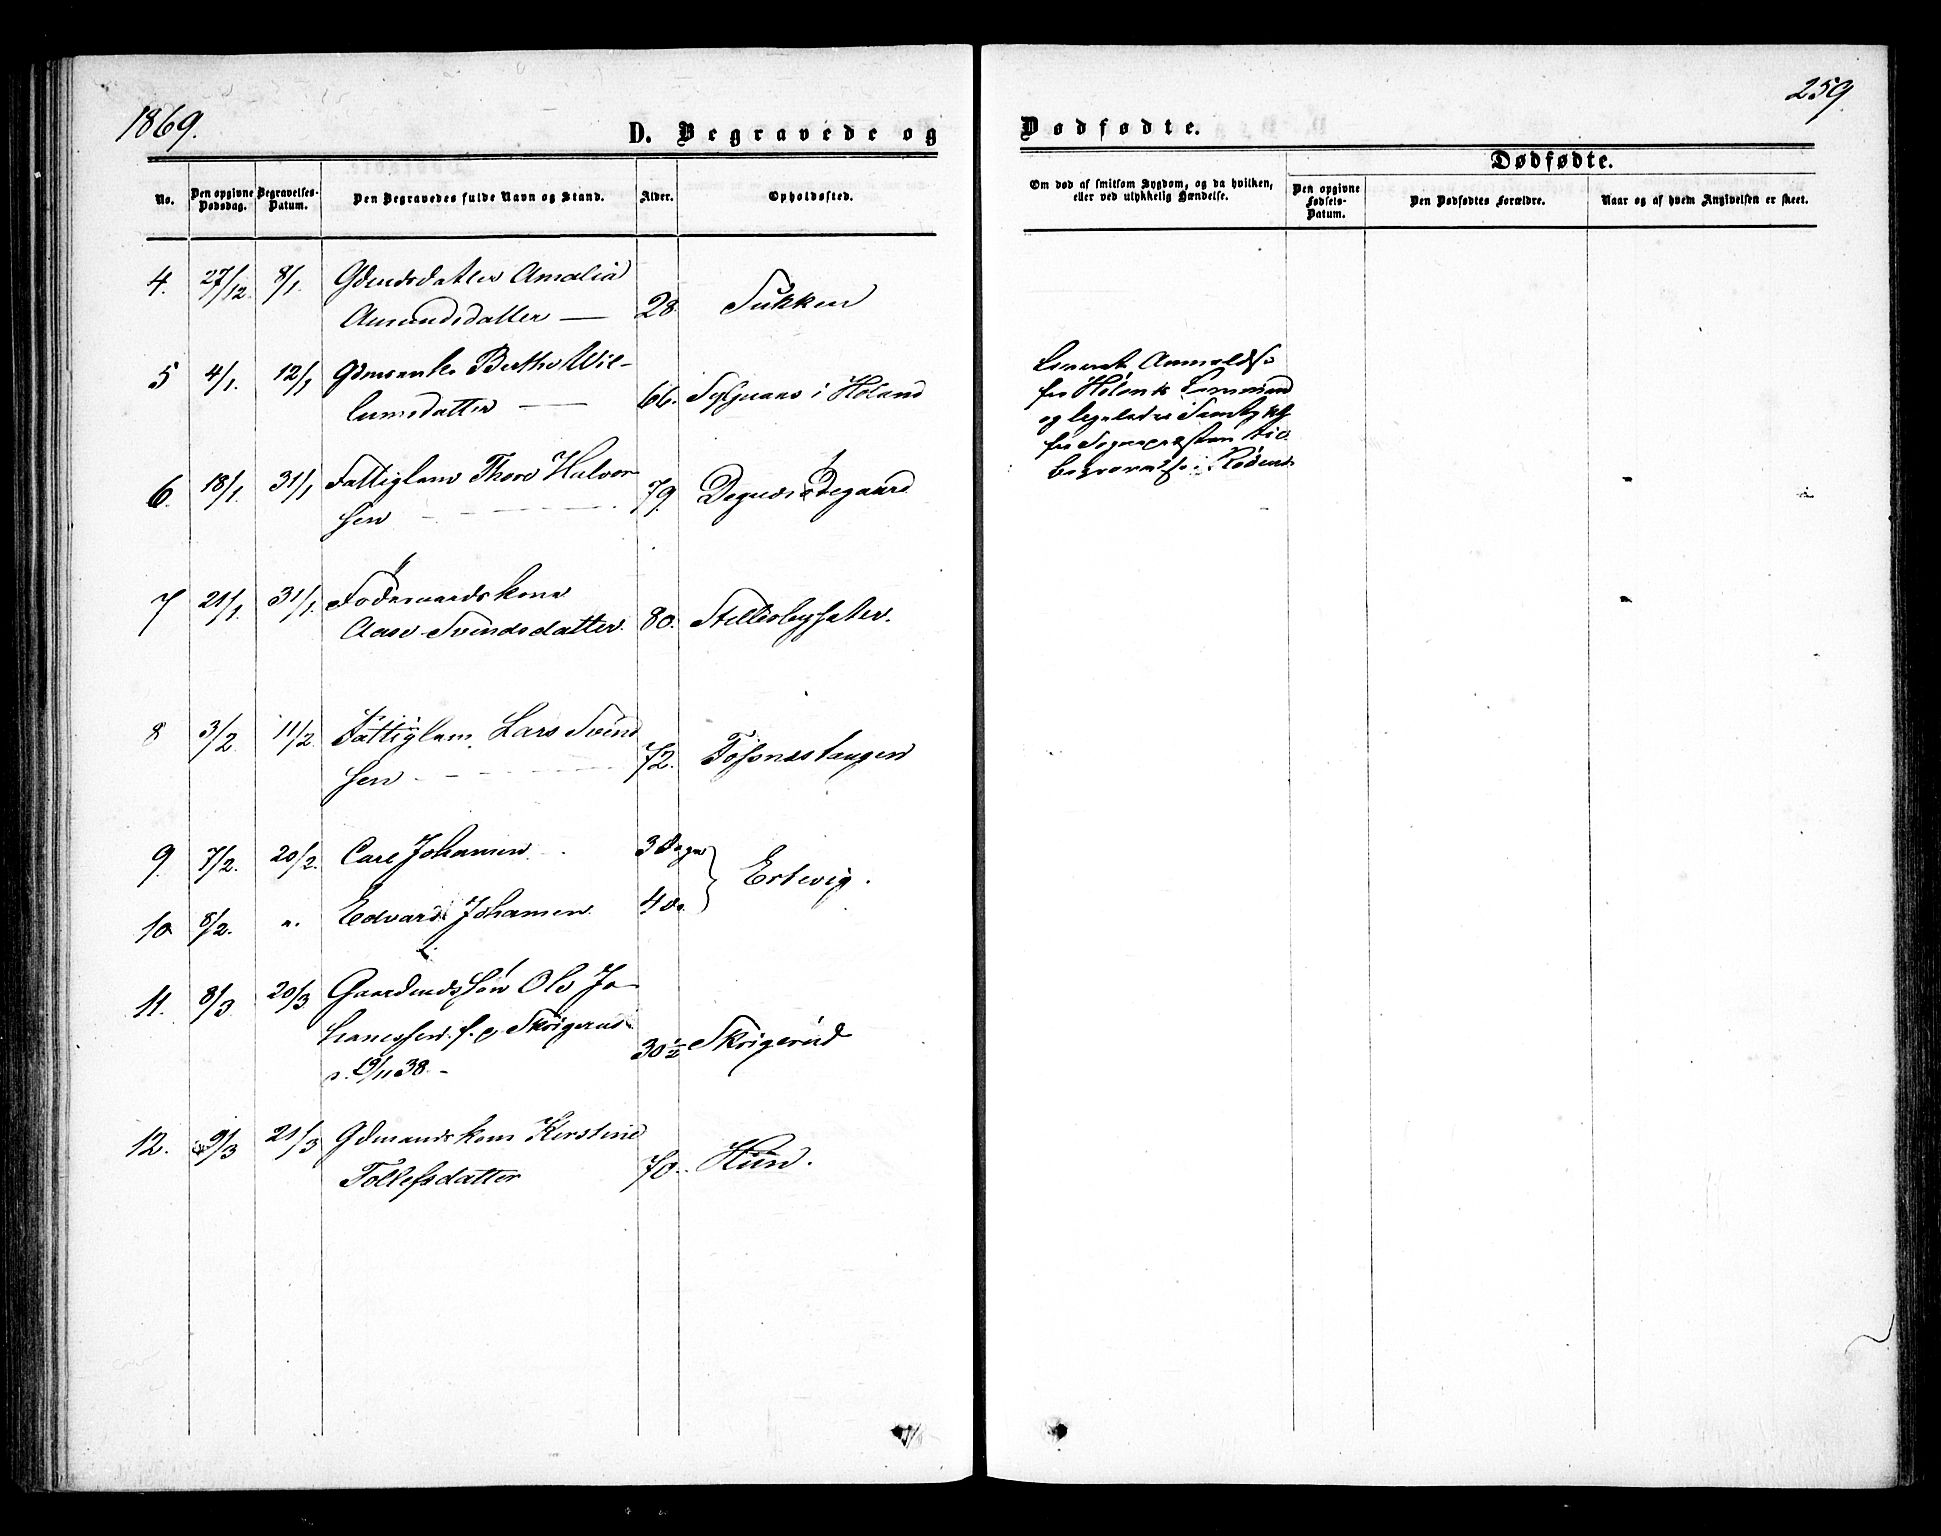 1869.
259.
D. Begravede og Dødfødte.
Dødfødte.
No.
Den opgivne Dødsdag.
Begravelses-Datum.
Den Begravedes fulde Navn og Stand.
Alder.
Opholdssted.
Om død af smitsom Sygdom, og da hvilken,
eller ved ulykkelig Hændelse.
Den opgivne Fødsels-Datum.
Den Dødfødtes Forældre.
Naar og af hvem Angivelsen er skeet.
4. 27/12. 8/1. Amalia
Amundsdatter — 28. Sukken
5 4/1. 12/1 Berthe Wil-
lumsdatter — 66. i Høland
6. 18/1. 31/1 Fattiglem Thore Halvor
sen 79. Degnesødegaard
7 21/1. 31/1. Föderaadskone
Aase Svendsdatter. 80. Stillesbysæter.
8 3/2 11/2. Fattiglem Lars Svend
sen 72. Fossnæstangen
9. 7/2. 20/2. Carl Johansen 3 Dage
Ertevig.
10 8/2. ". Edvard Johansen 4 Do.
11. 8/3 20/3 Gaardmdssøn Ole Jo-
hannessen f. p. Skøigerud
19/11 38. 30 1/2 Skøigerud
12. 9/3 21/3 Gdmandskone Kirstine
Tollefsdatter 70. Hün.
fra Høland
og
fra Sognepræsten
Begravelse i Rødenæs